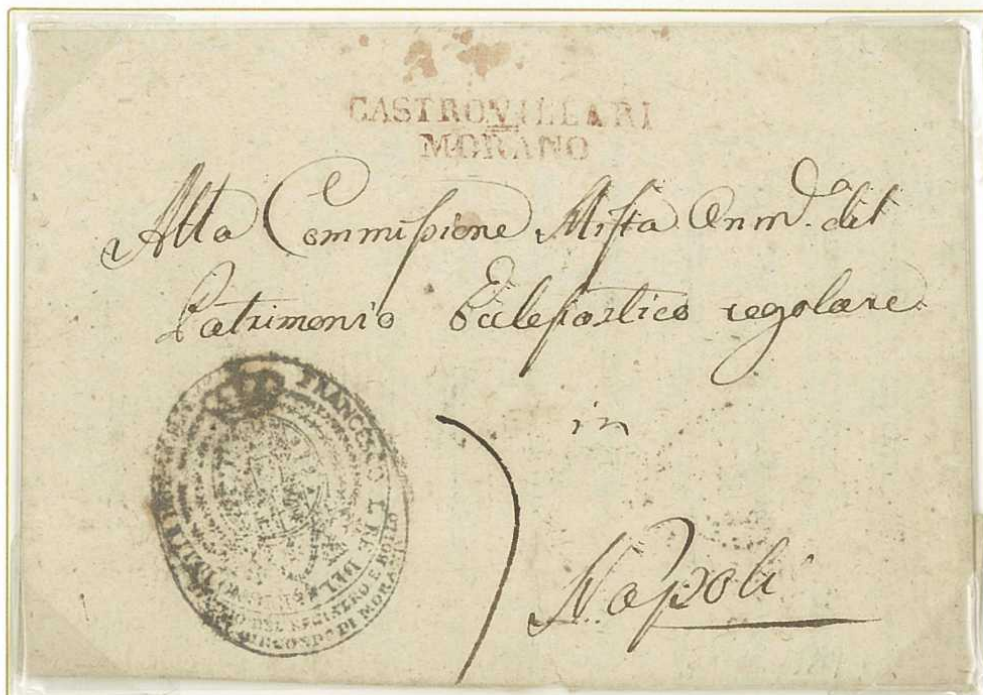 CASTROVILLARI
MORANO
Alla Commissione Mista Amm.a del
Patrimonio Ecclesiastico regolare
in
Napoli
FRANCESCO I. RE DEL
DEL REGISTRO E BOLLO
CIRCONDO DI MORANO